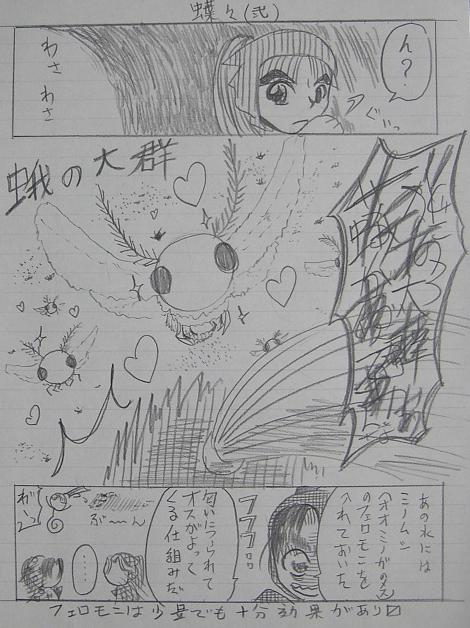 蝶々(弐)
ん?
ぐいっ
わさ
わさ
蛾の大群
あの水には
ミノムシ
(オオミノガの
のフェロモンを
入れておいた
フフフ
匂いにつられて
オスがよって
くる仕組みだ
ぶ〜ん
…
フェロモンは少量でも十分効果があり〼